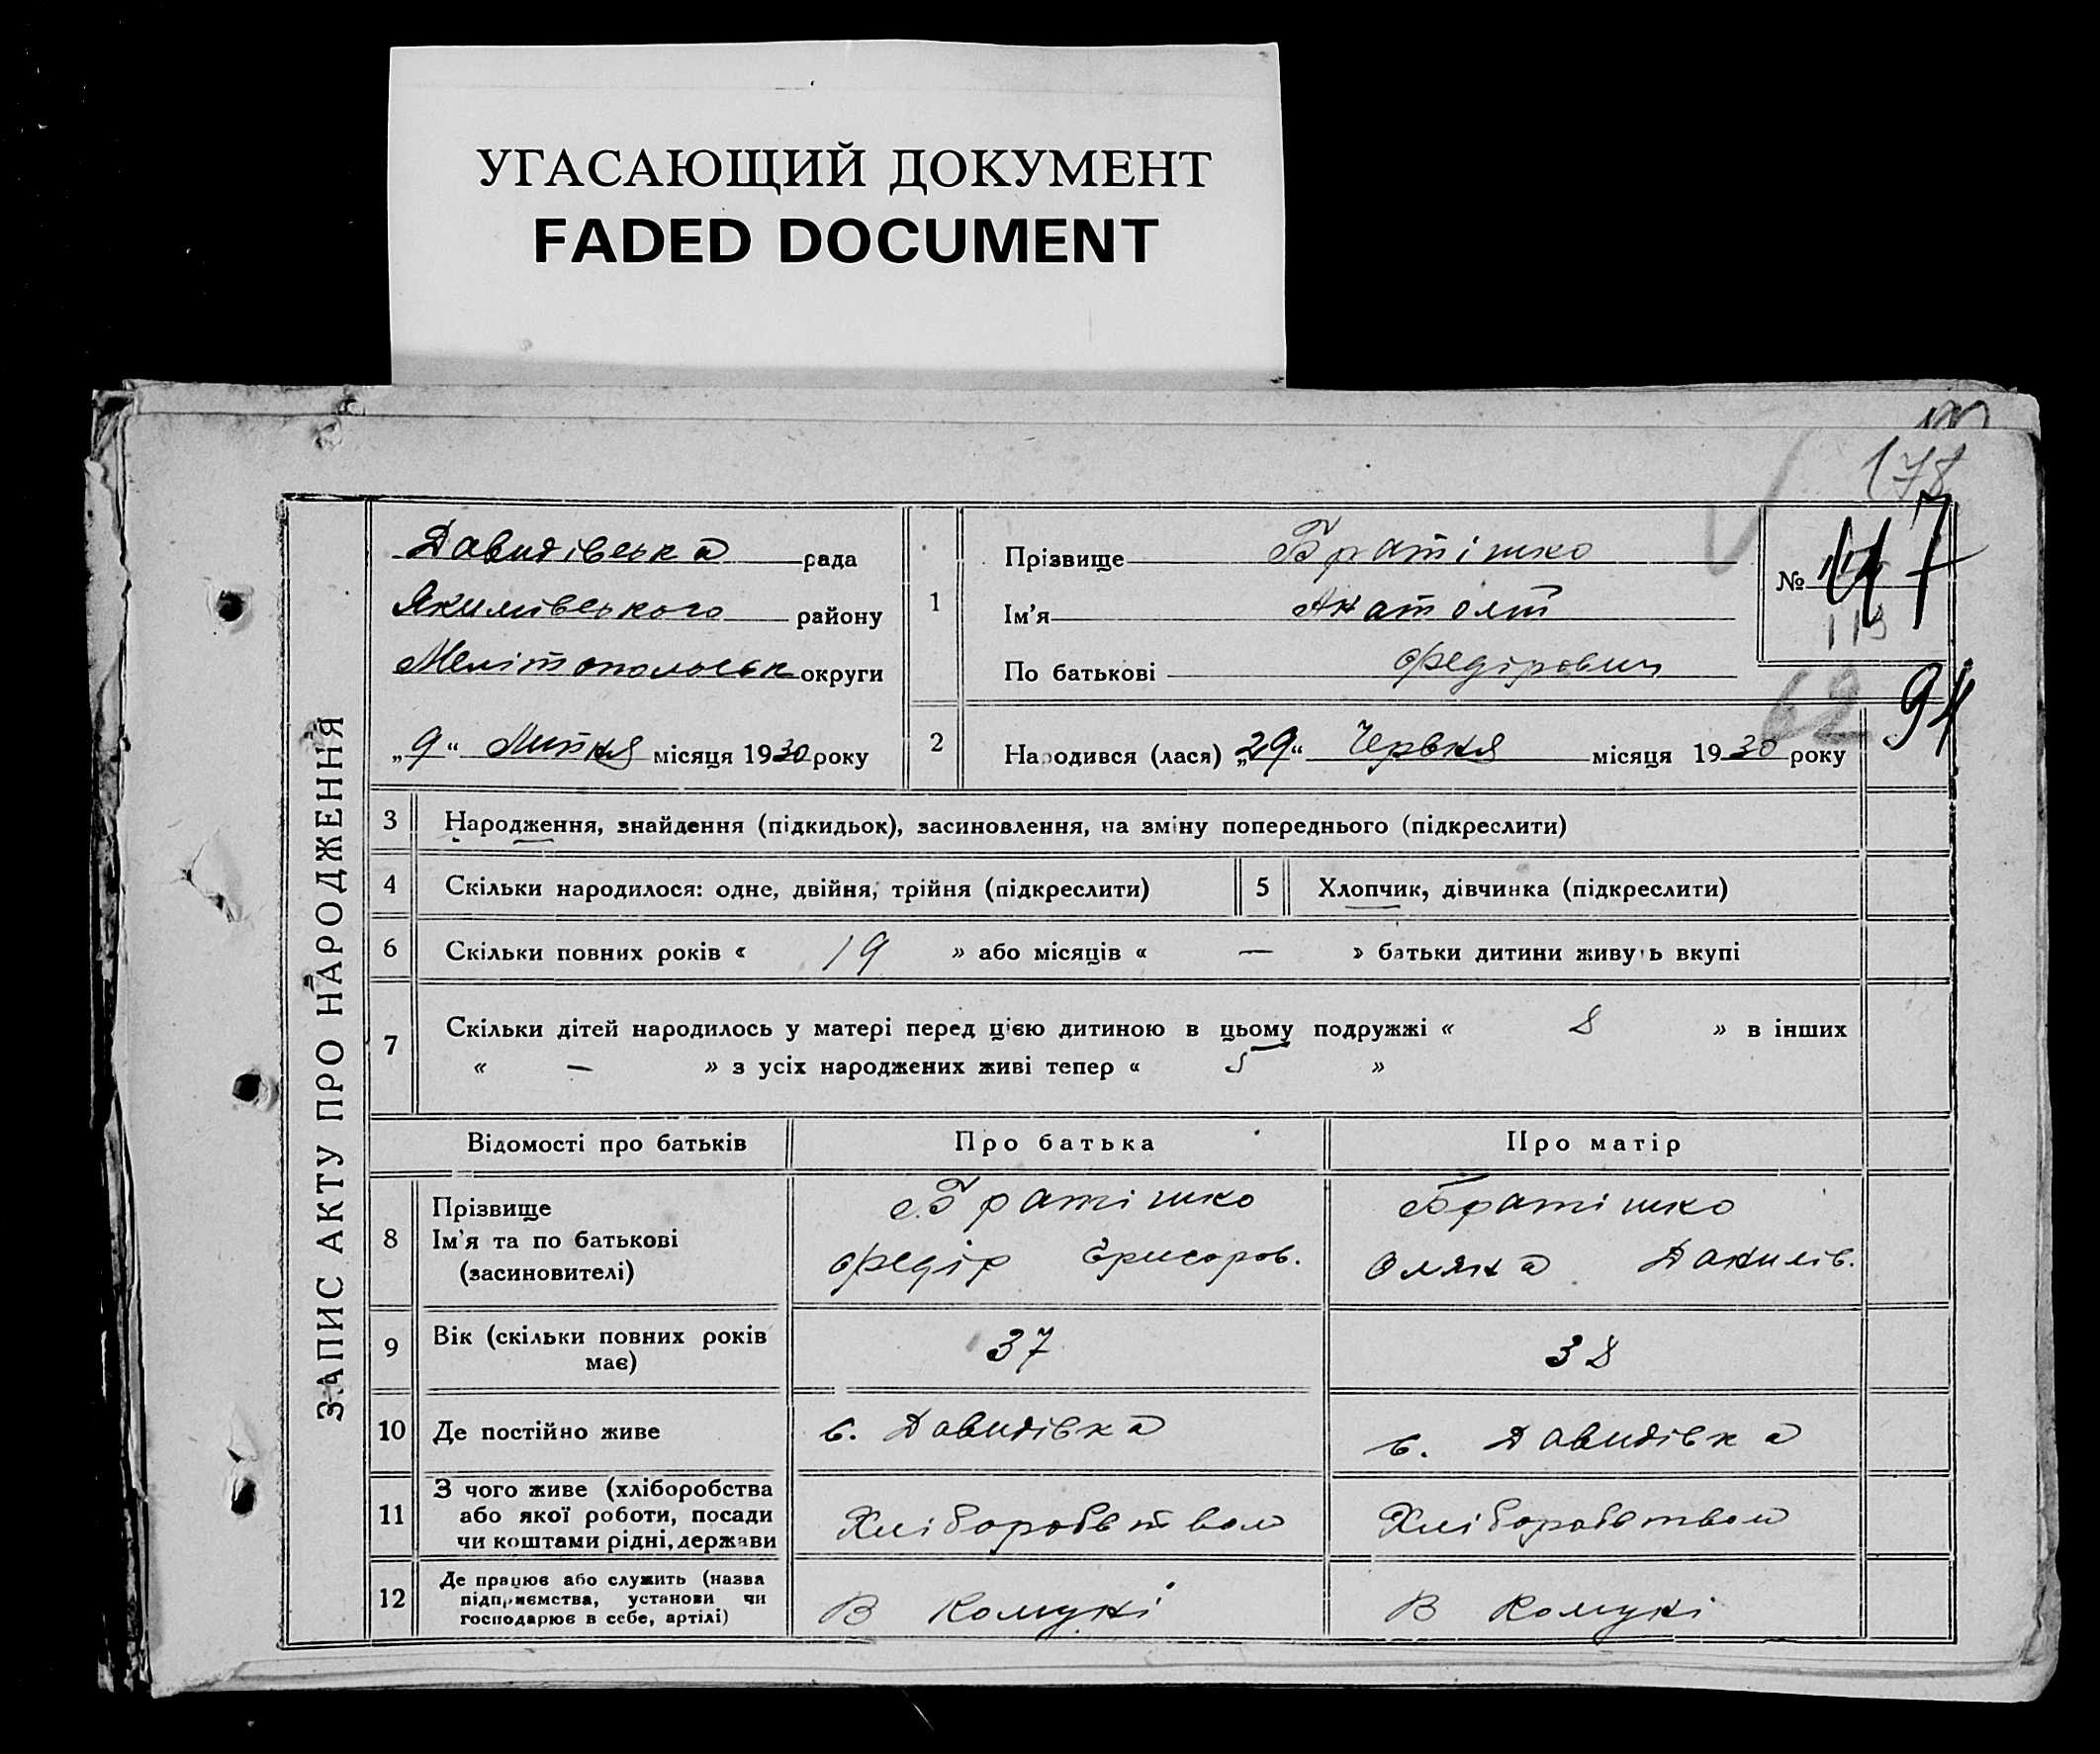 УГАСАЮЩИЙ ДОКУМЕНТ
FADED DOCUMENT
178
ЗАПИС АКТУ ПРО НАРОДЖЕННЯ
Давидівська рада
Якимівського району
Мелітопольськ округи
„9“ Липня місяця 1930 року
1
Прізвище Братішко
Ім'я Анатолій
По батькові Федірович
№ 117
113
62 94
2 Народився (лася) „29“ Червня місяця 1930 року
3 Народження, знайдення (підкидьок), засиновлення, на зміну попереднього (підкреслити)
4 Скільки народилося: одне, двійня, трійня (підкреслити) 5 Хлопчик, дівчинка (підкреслити)
6 Скільки повних років « 19 » або місяців « — » батьки дитини живуть вкупі
7 Скільки дітей народилось у матері перед цією дитиною в цьому подружжі « 8 » в інших
« — » з усіх народжених живі тепер « 5 »
Відомості про батьків Про батька Про матір
8 Прізвище
Ім'я та по батькові
(засиновителі)
Братішко
Федір Григоров.
Братішко
Оляна Данилів.
9 Вік (скільки повних років
має)
37 38
10 Де постійно живе с. Давидівка с. Давидівка
11 З чого живе (хліборобства
або якої роботи, посади
чи коштами рідні, держави
Хліборобством Хліборобством
12 Де працює або служить (назва
підприємства, установи чи
господарює в себе, артілі)
В Комуні В Комуні